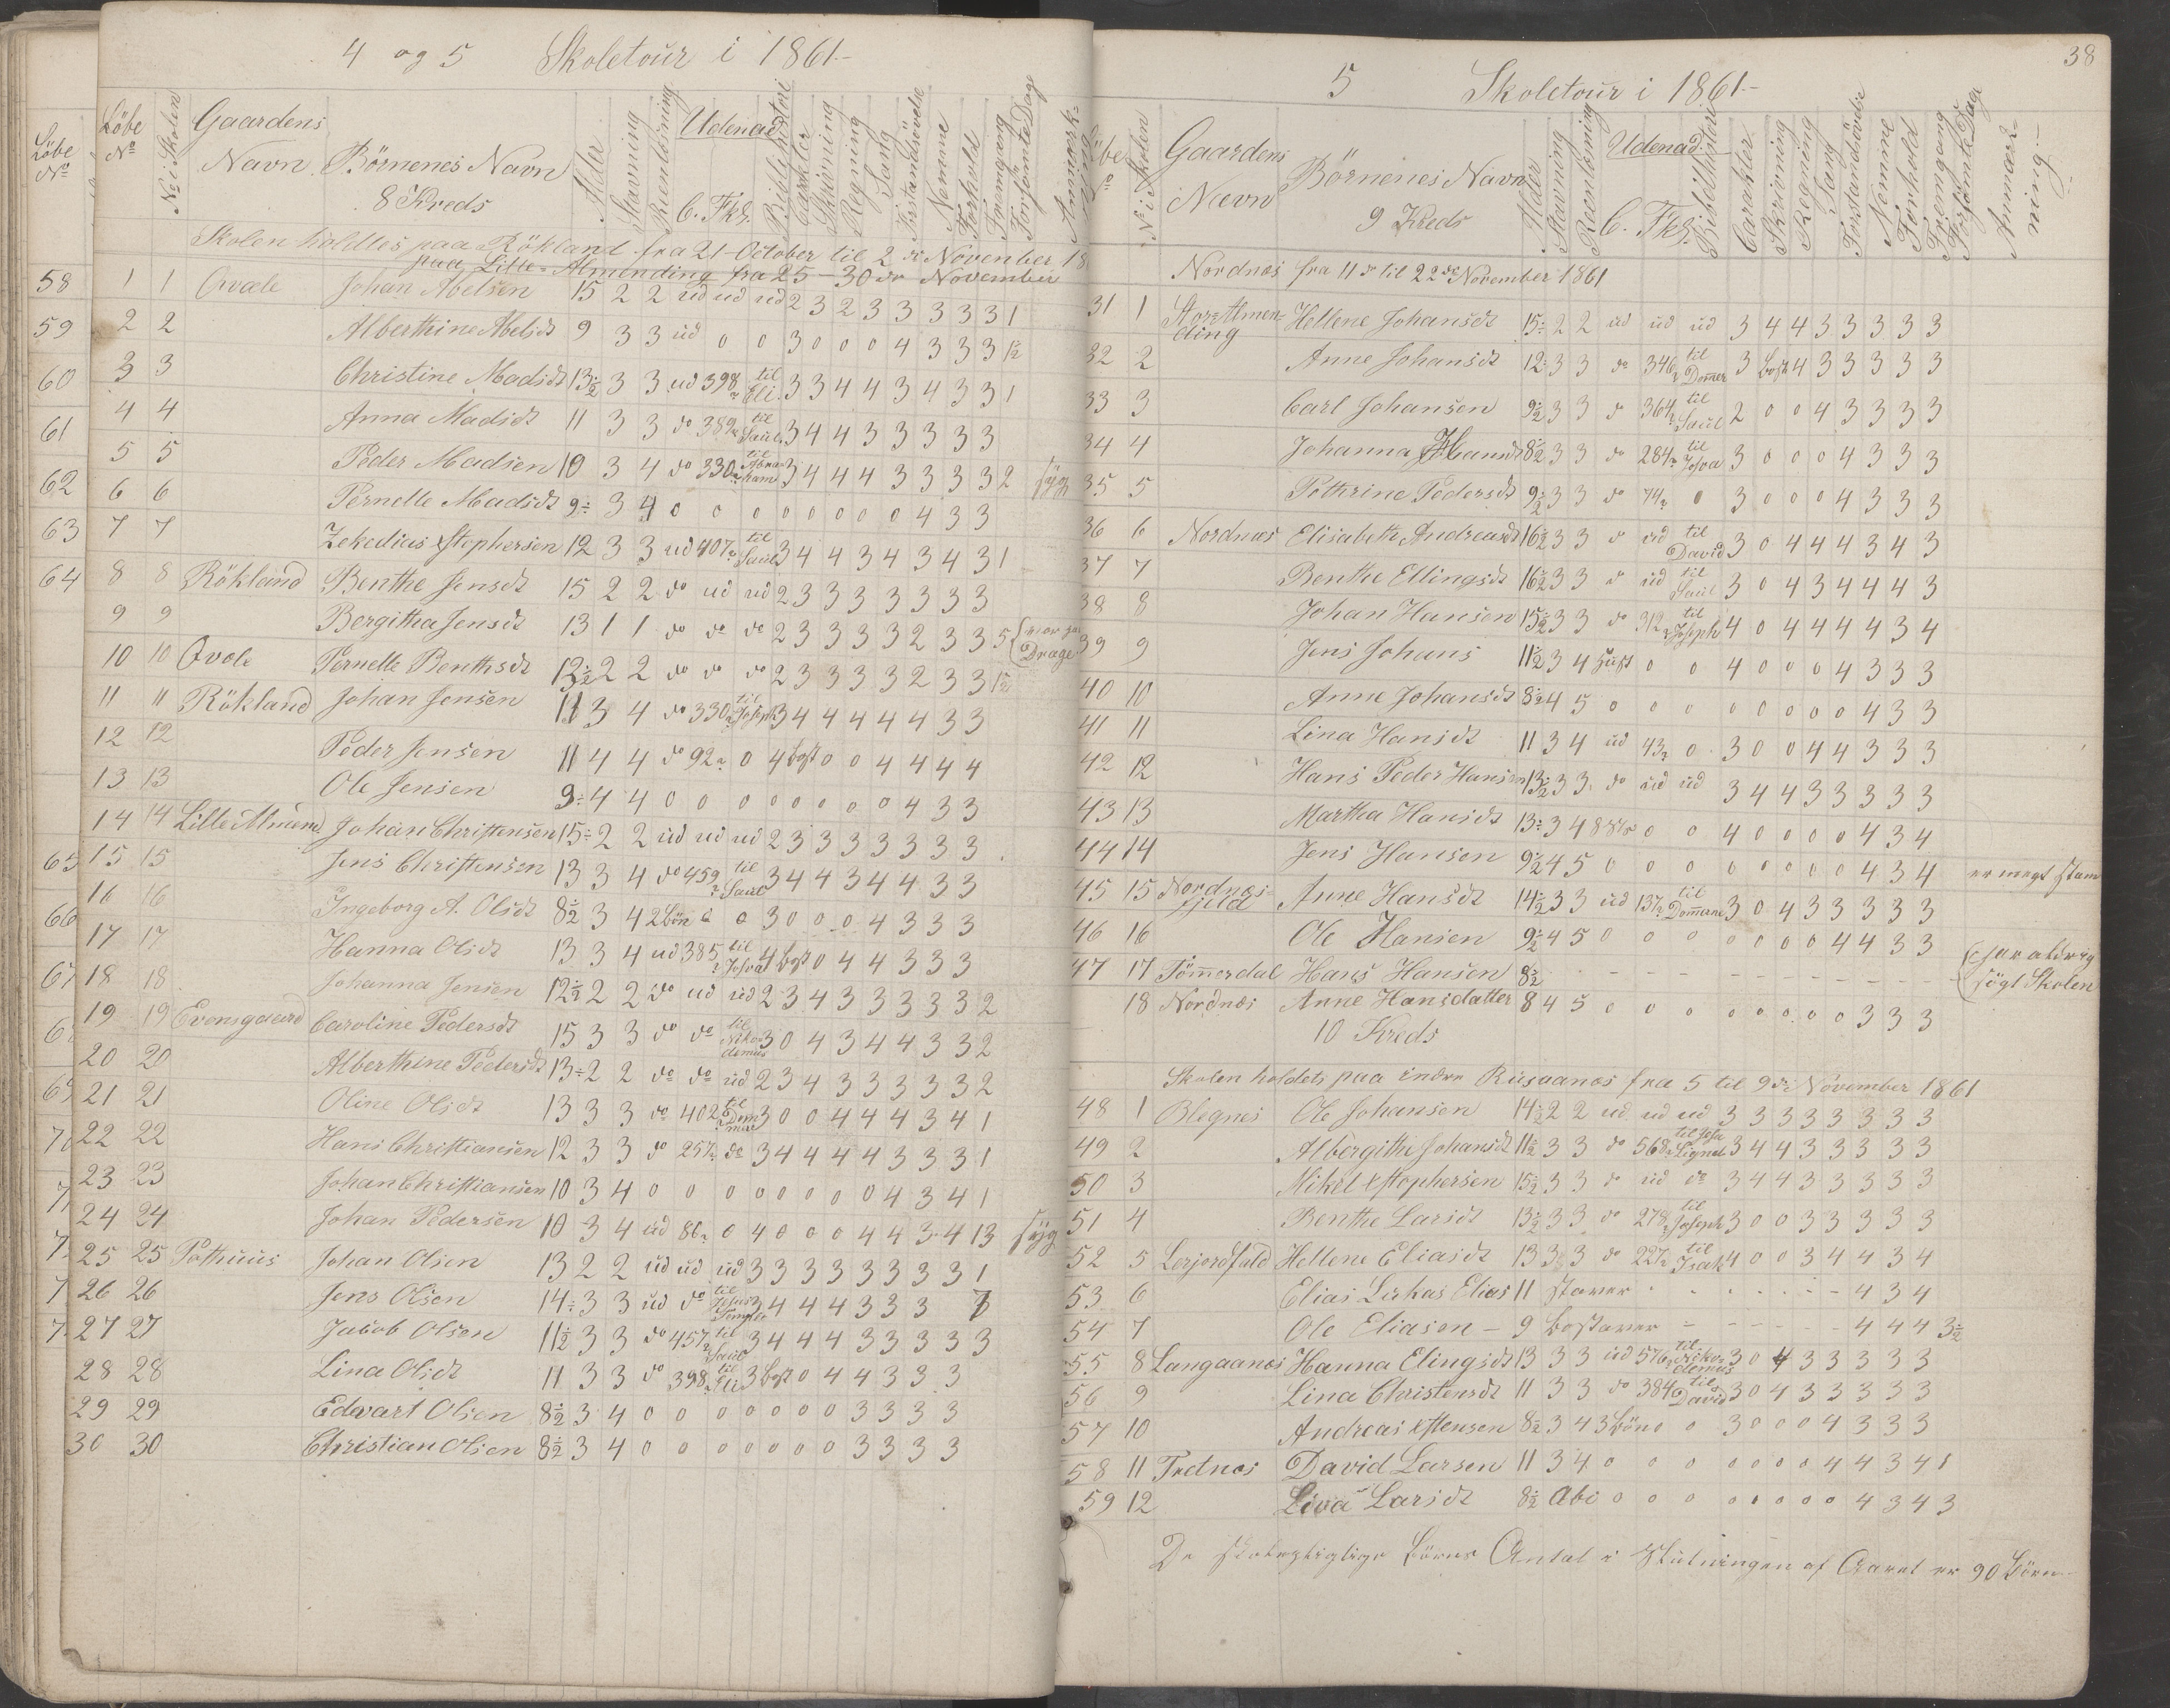 4 og 5 Skoletour i 1861.-
Löbe No
Löbe No
No i Skolen
Gaardens Navn
Börnenes Navn
8 Kreds
Alder
Stavning
Reenlæsning
Udenad
C. Fkl.
Bibelhistori
Carakter
Skrivning
Regning
Sang
Forstandsövelse
Nemme
Forhold
Fremgang
Forsömte Dage
Anmærk-
Skolen holdtes paa Rökland fra 21 October til 2 de November 18
paa Lille-Alminding fra 25-30 de November
58 1 1 Qvale Johan Abelsen 15 2 2 ud ud ud 2 3 2 3 3 3 3 3 3 1
59 2 2 Alberthine Abelsdt 9 3 3 ud 0 0 3 0 0 0 4 3 3 3 1½
60 3 3 Christine Madsdt 13½ 3 3 ud 398 til Eli 3 3 4 4 3 4 3 3 1
61 4 4 Anna Madsdt 11 3 3 do 389 til Saul 3 4 4 3 3 3 3 3
5 5 Peder Madsen 10 3 4 do 330 til Abraham 3 4 4 4 3 3 3 3 2 syg
62 6 6 Pernelle Madsdt 9½ 3 4 0 0 0 0 0 0 0 0 4 3 3
63 7 7 Zekedias Xstophersen 12 3 3 ud 407 til Saul 3 4 4 3 4 3 4 3 1
64 8 8 Rökland Benthe Jensdt 15 2 2 do ud ud 2 3 3 3 3 3 3 3
9 9 Bergitha Jensdt 13 1 1 do do do 2 3 3 3 3 2 3 3 5
10 10 Qvale Pernelle Benthsdt 12½ 2 2 do do do 2 3 3 3 3 2 3 3 1½
11 11 Rökland Johan Jensen 11 3 4 do 330 til Joseph 3 4 4 4 4 4 3 3
12 12 Peder Jensen 11 4 4 do 92 0 4 bogst 0 0 4 4 4 4
13 13 Ole Jensen 9½ 4 4 0 0 0 0 0 0 0 4 3 3
14 14 Lille Almend. Johan Christensen 15½ 2 2 ud ud ud 2 3 3 3 3 3 3 3
65 15 15 Jens Christensen 13 3 4 do 459 til Saul 3 4 4 3 4 4 3 3
16 16 Ingeborg A. Olsdt 8½ 3 4 2 Bön 0 0 3 0 0 0 4 3 3 3
66 17 17 Hanna Olsdt 13 3 4 ud 385 til Josva 4 bogst 0 4 4 3 3 3
67 18 18 Johanna Jensen 12½ 2 2 do ud ud 2 3 4 3 3 3 3 3 2
19 19 Evensgaard Caroline Pedersdt 15 3 3 do do til Nikodemus 3 0 4 3 4 4 3 3 2
20 20 Alberthine Pedersdt 13½ 2 2 do do ud 2 3 4 3 3 3 3 3 2
69 21 21 Oline Olsdt 13 3 3 do 402 til 3 0 0 4 4 4 3 4 1
22 22 Hans Christiansen 12 3 3 do 257 do 3 4 4 4 4 3 3 3 1
23 23 Johan Christiansen 10 3 4 0 0 0 0 0 0 0 0 4 3 4 1
24 24 Johan Pedersen 10 3 4 ud 86 0 4 0 0 0 4 4 3 4 13 syg
25 25 Pothuus Johan Olsen 13 2 2 ud ud ud 3 3 3 3 3 3 3 3 1
26 26 Jens Olsen 14½ 3 3 ud do til 3 4 4 4 3 3 3 7
27 27 Jacob Olsen 11½ 3 3 do 457 til Saul 3 4 4 4 3 3 3 3 3
28 28 Lina Olsdt 11 3 3 do 398 til Eli 3 bogst 0 4 4 3 3 3
29 29 Edvart Olsen 8½ 3 4 0 0 0 0 0 0 0 3 3 3 3
30 30 Christian Olsen 8½ 3 4 0 0 0 0 0 0 0 3 3 3 3
38
5 Skoletour i 1861.-
Löbe No
No i Skolen
Gaardens Navn
Börnenes Navn
9 Kreds
Alder
Stavning
Reenlæsning
Udenad.
C. Fkl.
Bibelhistori
Carakter
Skrivning
Regning
Sang
Forstandsövelse
Nemme
Forhold
Fremgang
Forsömte Dage
Anmærk-
ning.-
Nordnæs fra 11 de til 22 de November 1861
31 1 Store Almen-
ding Hellene Johansdt 15½ 2 2 ud ud ud 3 4 4 3 3 3 3 3
32 2 Anne Johansdt 12½ 3 3 do 346 til Dommer 3 bogst 4 3 3 3 3 3
33 3 Carl Johansen 9½ 3 3 do 364 til Saul 2 0 0 4 3 3 3 3
34 4 Johanna Hansdt 8½ 3 3 do 284 til Josva 3 0 0 0 4 3 3 3
35 5 Pethrine Pedersdt 9½ 3 3 do 74 0 3 0 0 0 4 3 3 3
36 6 Nordnæs Elisabeth Andreasdt 16½ 3 3 do ud til David 3 0 4 4 4 3 4 3
37 7 Benthe Ellingsdt 16½ 3 3 do ud til Saul 3 0 4 3 4 4 4 3
38 8 Johan Hansen 15½ 3 3 do 312 til Joseph 4 0 4 4 4 4 3 4
39 9 Jens Johans 11½ 3 4 0 0 4 0 0 0 4 3 3 3
40 10 Anne Johansdt 8½ 4 5 0 0 0 0 0 0 0 0 4 3 3
41 11 Lina Hansdt 11 3 4 ud 43 0 3 0 0 4 4 3 3 3
42 12 Hans Peder Hansen 13½ 3 3 do ud ud 3 4 4 3 3 3 3 3
43 13 Martha Hansdt 13½ 3 4 0 0 4 0 0 0 0 4 3 4
44 14 Jens Hansen 9½ 4 5 0 0 0 0 0 0 0 0 4 3 4 er megt stam
45 15 Nordnæs-
fjeld Anne Hansdt 14½ 3 3 ud 137 til Dommerne 3 0 4 3 3 3 3 3
46 16 Ole Hansen 9½ 4 5 0 0 0 0 0 0 0 4 4 3 3
47 17 Tömmerdal Hans Hansen 8½ - - - - - - har aldrig
sögt Skolen
18 Nordnæs Anne Hansdatter 8 4 5 0 0 0 0 0 0 0 0 3 3 3
10 Kreds
Skolen holdets paa indre Rusaanæs fra 5 til 9 de November 1861
48 1 Blegnes Ole Johansen 14½ 2 2 ud ud ud 3 3 3 3 3 3 3 3
49 2 Albergithe Johansdt 11½ 3 3 do 568 3 4 4 3 3 3 3 3
50 3 Mikel Xstophersen 15½ 3 3 do ud do 3 4 4 3 3 3 3 3
51 4 Benthe Larsdt 13½ 3 3 do 278 til Joseph 3 0 0 3 3 3 3 3
52 5 Lerjordfald Hellene Eliasdt 13 3 3 do 227 til Isak 4 0 0 3 4 4 3 4
53 6 Elias Elias 11 staver - - - - - - 4 3 4
54 7 Ole Eliasen - 9 bostaver - - - - - - 4 4 4 3½
55 8 Langaanæs Hanna Elingsdt 13 3 3 ud 576 til Nikodemus 3 0 4 3 3 3 3 3
56 9 Lina Christensdt 11 3 3 do 384 til David 3 0 4 3 3 3 3 3
57 10 Andreas Xstensen 8½ 3 4 3 Bön 0 0 3 0 0 0 4 3 3 3
58 11 Tretnes David Larsen 11 3 4 0 0 0 0 0 0 0 4 4 3 4 1
59 12 Lina Larsdt 8½ Abi 0 0 0 0 0 0 0 0 4 3 4 3
De skolepligtige Börns Antal i Slutningen af Aaret er 90 Börn